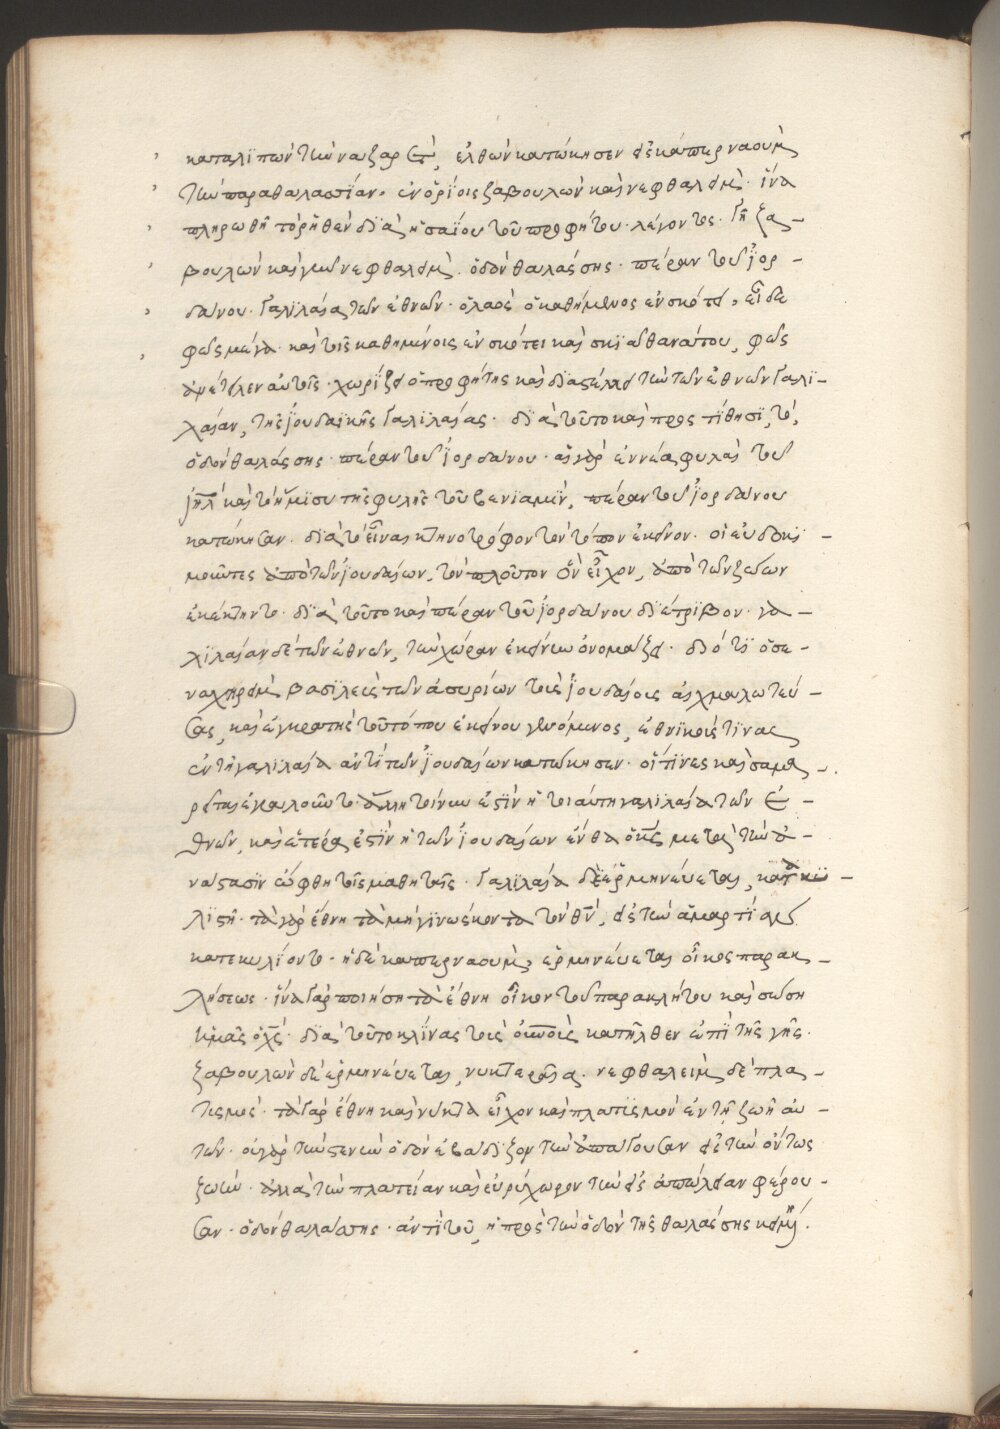 καταλιπὼν τὴν ναζαρέτ, ἐλθὼν κατώκησεν εἰς καπερναοὺμ
τὴν παραθαλασσίαν· ἐν ὁρίοις ζαβουλὼν καὶ νεφθαλεὶμ· ἵνα
πληρωθῆ τὸ ῥηθὲν διὰ ἡσαΐου τοῦ προφήτου λέγοντος· Γῆ ζα-
βουλὼν καὶ γῆ νεφθαλεὶμ. ὁδὸν θαλάσσης· πέραν τοῦ ἰορ-
δάνου· Γαλιλαία τῶν ἐθνῶν· ὁ λαὸς ὁ καθήμενος ἐν σκότει, εἶδε
φῶς μέγα· καὶ τοῖς καθημένοις ἐν σκότει καὶ σκιᾶ θανάτου, φῶς
ἀνέτειλεν αὐτοῖς· χωρίζει ὁ προφήτης καὶ διαστέλλει τὴν τῶν ἐθνῶν Γαλι-
λαίαν, τῆς ἰουδαϊκῆς Γαλιλαίας. διὰ τοῦτο καὶ προστίθησι, τὸ,
ὁδὸν θαλάσσης· πέραν τοῦ ἰορδάνου· αἱ γὰρ ἐννέα φυλαὶ τοῦ
ἰηλ̅ καὶ τὸ ἥμισυ τῆς φυλῆς τοῦ βενιαμὶν, πέραν τοῦ ἰορδάνου
κατώκησαν. διὰ τὸ εἶναι κτηνοτρόφον τὸν τόπον ἐκεῖνον· οἱ εὐδοκι-
μοῦντες ἀπὸ τῶν ἰουδαίων, τὸν πλοῦτον ὃν εἶχον, ἀπὸ τῶν ζώων
ἐκέκτηντο· διὰ τοῦτο καὶ πέραν τοῦ ἰορδάνου διέτριβον· γα-
λιλαίαν δὲ τῶν ἐθνῶν, τὴν χώραν ἐκείνην ὀνομάζει· διότι ὁ σε-
ναχηρεὶμ βασιλεὺς τῶν ἀσυρίων τοὺς ἰουδαίους αἰχμαλωτεύ-
σας, καὶ ἐγκρατὴς τοῦ τόπου ἐκείνου γενόμενος, ἐθνικούς τινας
ἐν τῇ γαλιλαία ἀντὶ τῶν ἰουδαίων κατώκησεν· οἵτινες καὶ σαμα-
ρεῖται ἐκαλοῦντο· ἄλλη τοίνυν ἐστὶν ἡ τοιαύτη γαλιλαία τῶν ἐ-
θνῶν, καὶ ἑτέρα ἐστὶν ἡ τῶν ἰουδαίων ἔνθα ὁ κ̅ς̅ μετὰ τὴν ἀ-
νάστασιν ὤφθη τοῖς μαθηταῖς· Γαλιλαία δὲ ἑρμηνεύεται, κατακυ-
λιστὴ· τὰ γὰρ ἔθνη τὰ μὴ γινώσκοντα τὸν θ̅ν̅, εἰς τὴν ἁμαρτίαν
κατεκυλίοντο· ἡ δὲ καπερναοὺμ, ἑρμηνεύεται οἶκος παρακ-
λήσεως· ἵνα Γὰρ ποιήση τὰ ἔθνη οἶκον τοῦ παρακλήτου καὶ σώση
ἡμᾶς ὁ χ̅ς̅· διὰ τοῦτο κλίνας τοὺς οὐ̅νοὺς κατῆλθεν ἐπὶ τῆς γῆς·
ζαβουλὼν δὲ ἑρμηνεύεται, νυκτερεία· νεφθαλεὶμ δὲ πλα-
τυσμός· τὰ Γὰρ ἔθνη καὶ νύκτα εἶχον καὶ πλατισμὸν ἐν τῇ ζωῇ αὐ-
τῶν· οὐ γὰρ τὴν στενὴν ὁδὸν ἐβάδιζον τὴν ἀπάγουσαν εἰς τὴν ὄντως
ζωὴν· ἀλλὰ τὴν πλατείαν καὶ εὐρύχωρον τὴν εἰς ἀπώλειαν φέρου-
σαν· ὁδὸν θαλάσσης· ἀντὶ τοῦ, ἡ πρὸς τὴν ὁδὸν τῆς θαλάσσης κειμένη.